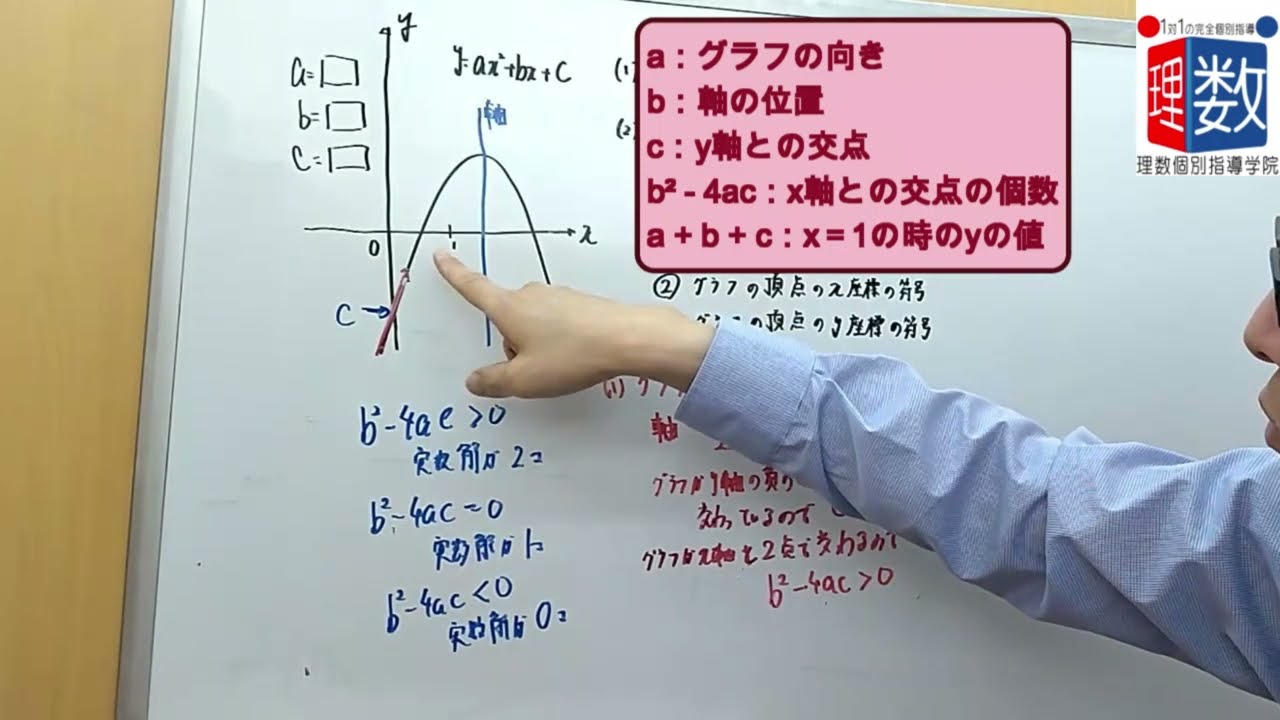 y
y=ax²+bx+c
a=□
b=□
c=□
軸
(1)
(2)
0
1
x
c→
a：グラフの向き
b：軸の位置
c：y軸との交点
b²-4ac：x軸との交点の個数
a+b+c：x=1の時のyの値
1対1の完全個別指導
理数
理数個別指導学院
② グラフの頂点のx座標の符号
グラフの頂点のy座標の符号
b²-4ac>0
実数解が2コ
b²-4ac=0
実数解が1コ
b²-4ac<0
実数解が0コ
(1) グラフ
軸
グラフがy軸の負の
交わっているので
グラフがx軸と2点で交わるので
b²-4ac>0